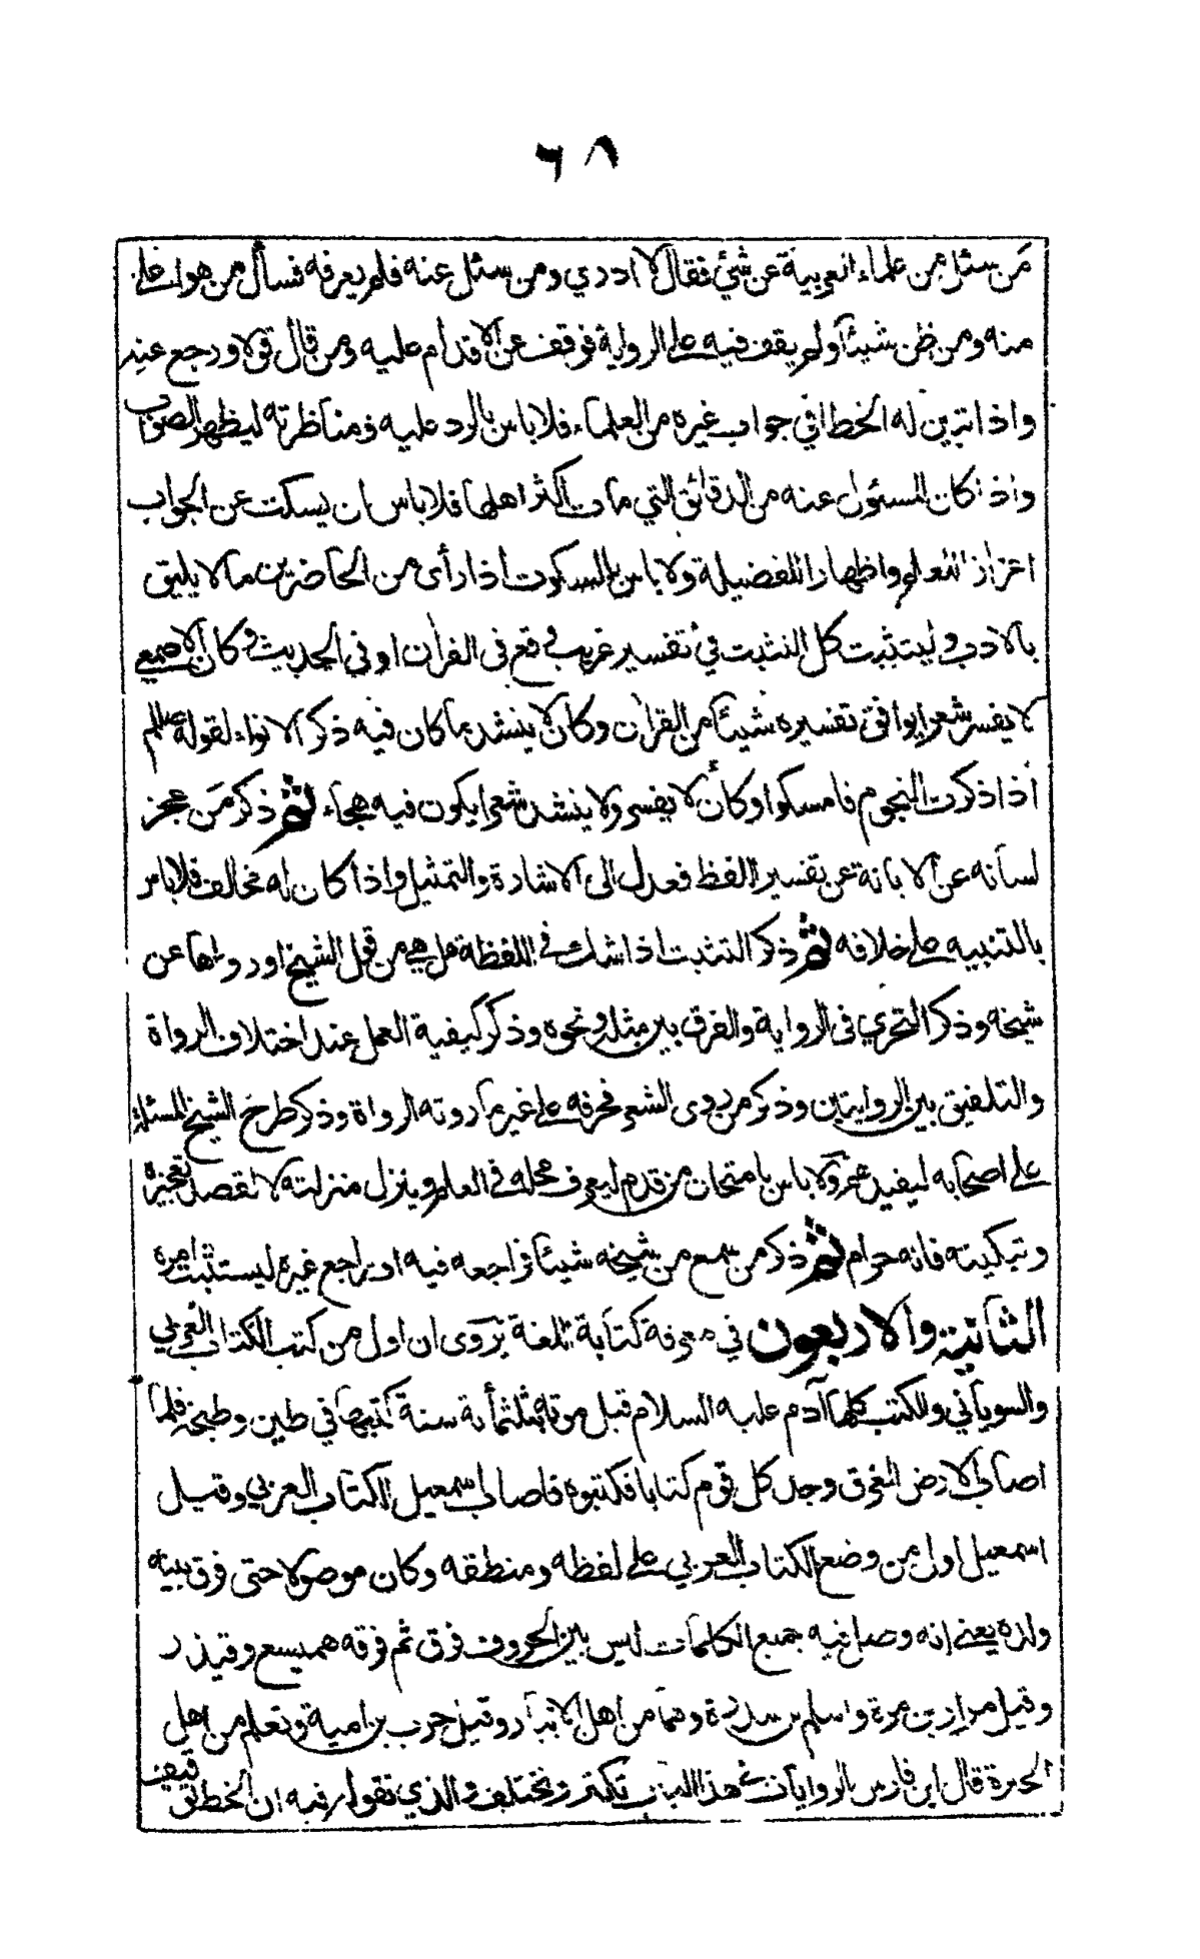 ٦٨
مَن سئل من علماء العربية عن شيئ فقال لا ادري ومن سئل عنه فلم يعرفه فسأل من هو اعلم
منه ومن ظن شيئاً ولم يقف فيه على الرواية فوقف عن الاقدام عليه ومن قال قولا ورجع عنه
واذا تبين له الخطا في جواب غيره من العلماء فلا باس بالرد عليه ومناظرته ليظهر الصواب
واذا كان المسئول عنه من الدقائق التي مات اكثر اهلها فلا باس ان يسكت عن الجواب
اعزازا للعلم واظهارا للفضيلة ولا باس بالسكوت اذا رأى من الحاضرين ما لا يليق
بالادب وليتثبت كل التثبت في تفسير غريب وقع فى القران او فى الحديث وكان الاصمعي
لا يفسر شعرا يوافق تفسيره شيئاً من القران وكان لا ينشد ما كان فيه ذكر الانواء لقوله صللم
اذا ذكرت النجوم فامسكوا وكان لا يفسر ولا ينشد شعرا يكون فيه هجاء ثم ذكر مَن عجز
لسانه عن الابانة عن تفسير اللفظ فعدل الى الاشارة والتمثيل واذا كان له مخالف فلا باس
بالتنبيه على خلافه ثم ذكر التثبت اذا شك في اللفظة هل هي من قول الشيخ او رواها عن
شيخه وذكر التحري فى الرواية والفرق بين مثله ونحوه وذكر كيفية العمل عند اختلاف الرواة
والتلفيق بين الروايتين وذكر من روى الشعر فحرفه على غير ما روته الرواة وذكر طرح الشيخ المسئلة
على اصحابه ليفيدهم ولا باس بامتحان من قدم ليعرف محله في العلم وينزل منزلته لا لقصد تعجيزه
وتبكيته فانه حرام ثم ذكر من سمع من شيخه شيئاً فراجعه فيه او راجع غيره ليستثبت امره
الثانية والاربعون في معرفة كتابة اللغة يروى ان اول من كتب الكتاب العربي
والسرياني والكتب كلها آدم عليه السلام قبل موته بثلثمائة سنة كتبها في طين وطبخه فلما
اصاب الارض الغرق وجد كل قوم كتابا فكتبوه فاصاب اسمعيل الكتاب العربي وقيل
اسمعيل اول من وضع الكتاب العربي على لفظه ومنطقه وكان موصولا حتى فرق بينه
ولده يعني انه وصل فيه جميع الكلمات ليس بين الحروف فرق ثم فرقه هميسع وقيذر
وقيل مرار بن مرة واسلم بن سدرة وهما من اهل الانبار وقيل حرب بن امية وتعلم من اهل
الحيرة قال ابن فارس الروايات في هذا الباب تكثر وتختلف والذي نقول فيه ان الخط توقيف